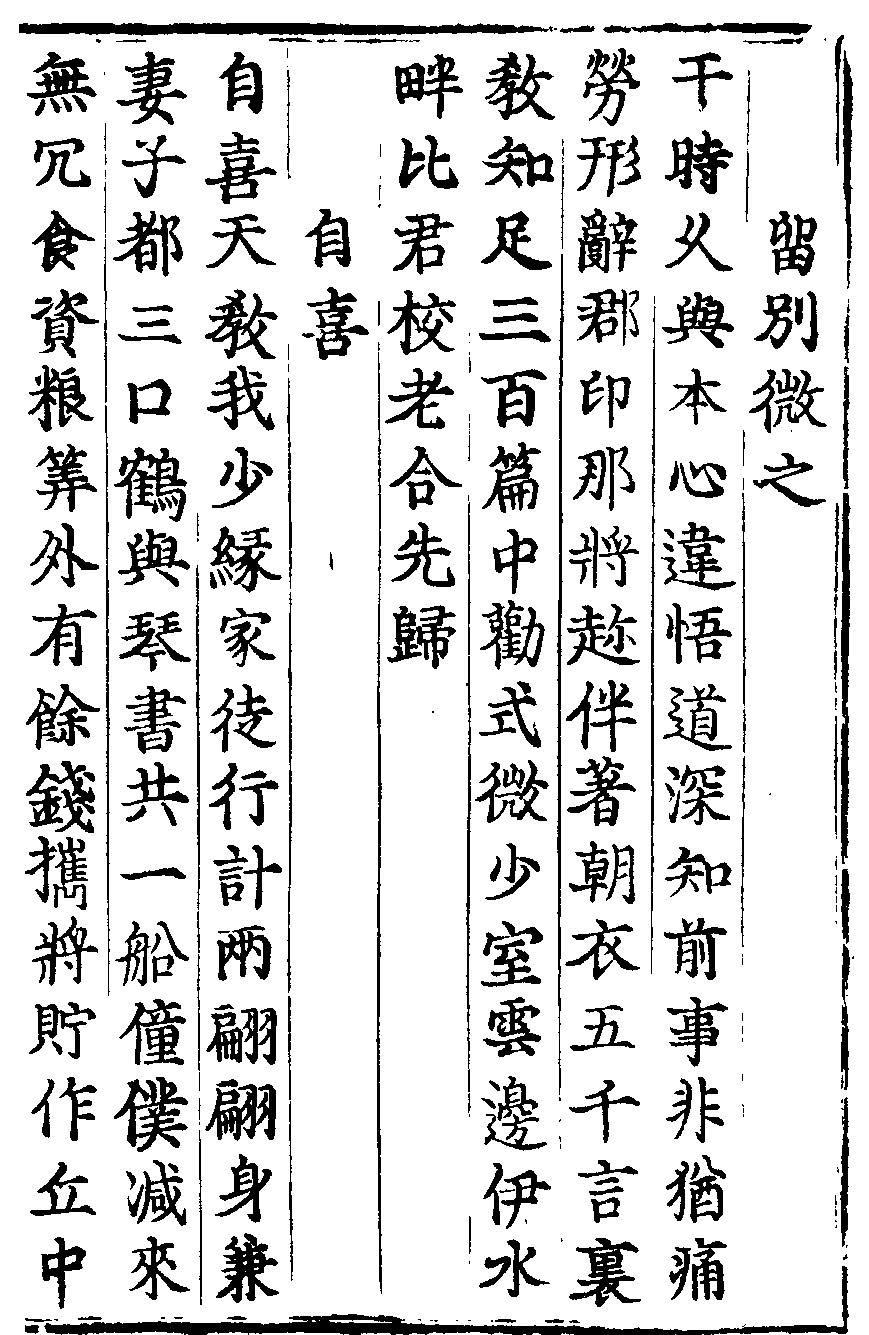 留別微之
干時乆與本心違悟道深知前事非猶痛
勞形辭郡印那將趂伴著朝衣五千言裏
教知足三百篇中勸式微少室雲邊伊水
畔比君校老合先歸
自喜
自喜天教我少縁家徒行計两翩翩身兼
妻子都三口鶴與琴書共一船僮僕减來
無冗食資粮筭外有餘錢攜將貯作丘中